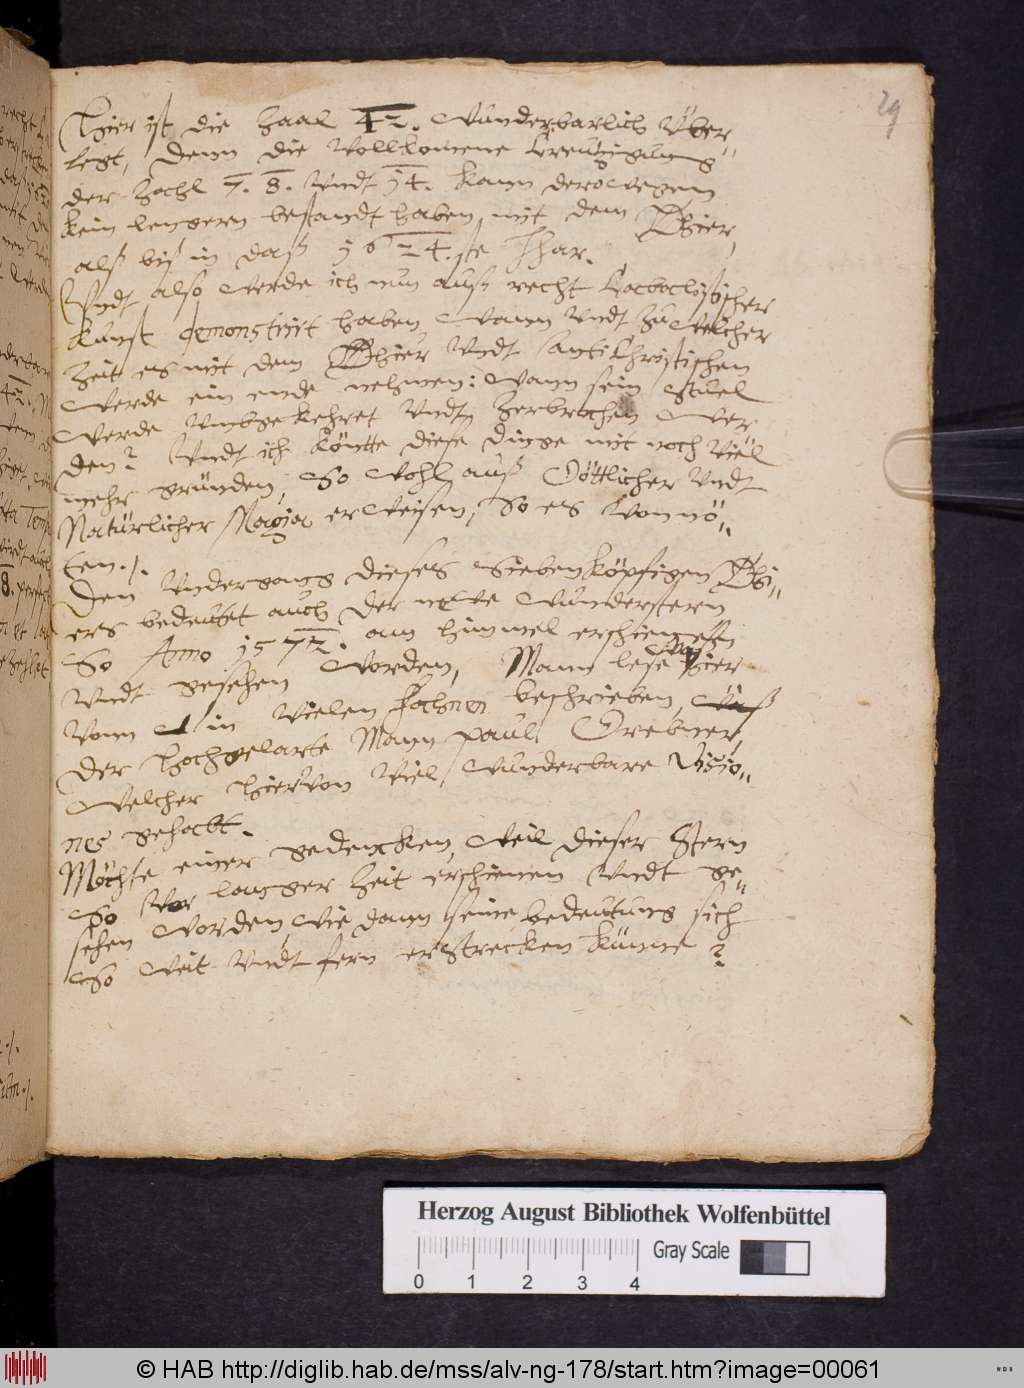 29
Thier ist die Zaal 42. Wunderbarlich Über„
legt, denn die Vollkomene Creutzigung
der Zahl 7. 8. Vndt 14. kann derowegen
kein lengern bestandt haben, mit dem Thier,
alß biß in daß 1624.ste Jhar.
Vndt also Werde ich nun auß recht Cacbalistischer
kunst demonstrirt haben, Wann Vndt zu Welcher
Zeit es mit dem Thier Vndt Antichristischen
Werde ein ende nehmen: Wann sein Stuel
Werde Vmbgekehret Vndt zerbrochen Wer
den? Vndt ich köntte diese dinge mit noch Viel
mehr gründen, So Wohl auß Göttlicher Vndt
Natürlicher Magia erWeisen, So es Vonnö„
ten./.
Den Vndergang dieses Siebenköpfigen Thi„
ers bedeutet auch der newe Wunderstern
So Anno 1572. am himmel erschienen
Vndt gesehen Worden, Mann lese hier
Vonn in Vielen beschrieben, Was
der Hochgelarte Mann Paul. Grebner,
Welcher hiervon Viel Wunderbare Visio„
nes gehabt.
Möchte einer gedencken, Weil dieser Stern
So Vor langer Zeit erschienen Vndt ge„
sehen Worden, Wie dann seine bedeutung sich
So Weit Vndt fern erStrecken künne?
Herzog August Bibliothek Wolfenbüttel
Gray Scale
0 1 2 3 4
© HAB http://diglib.hab.de/mss/alv-ng-178/start.htm?image=00061